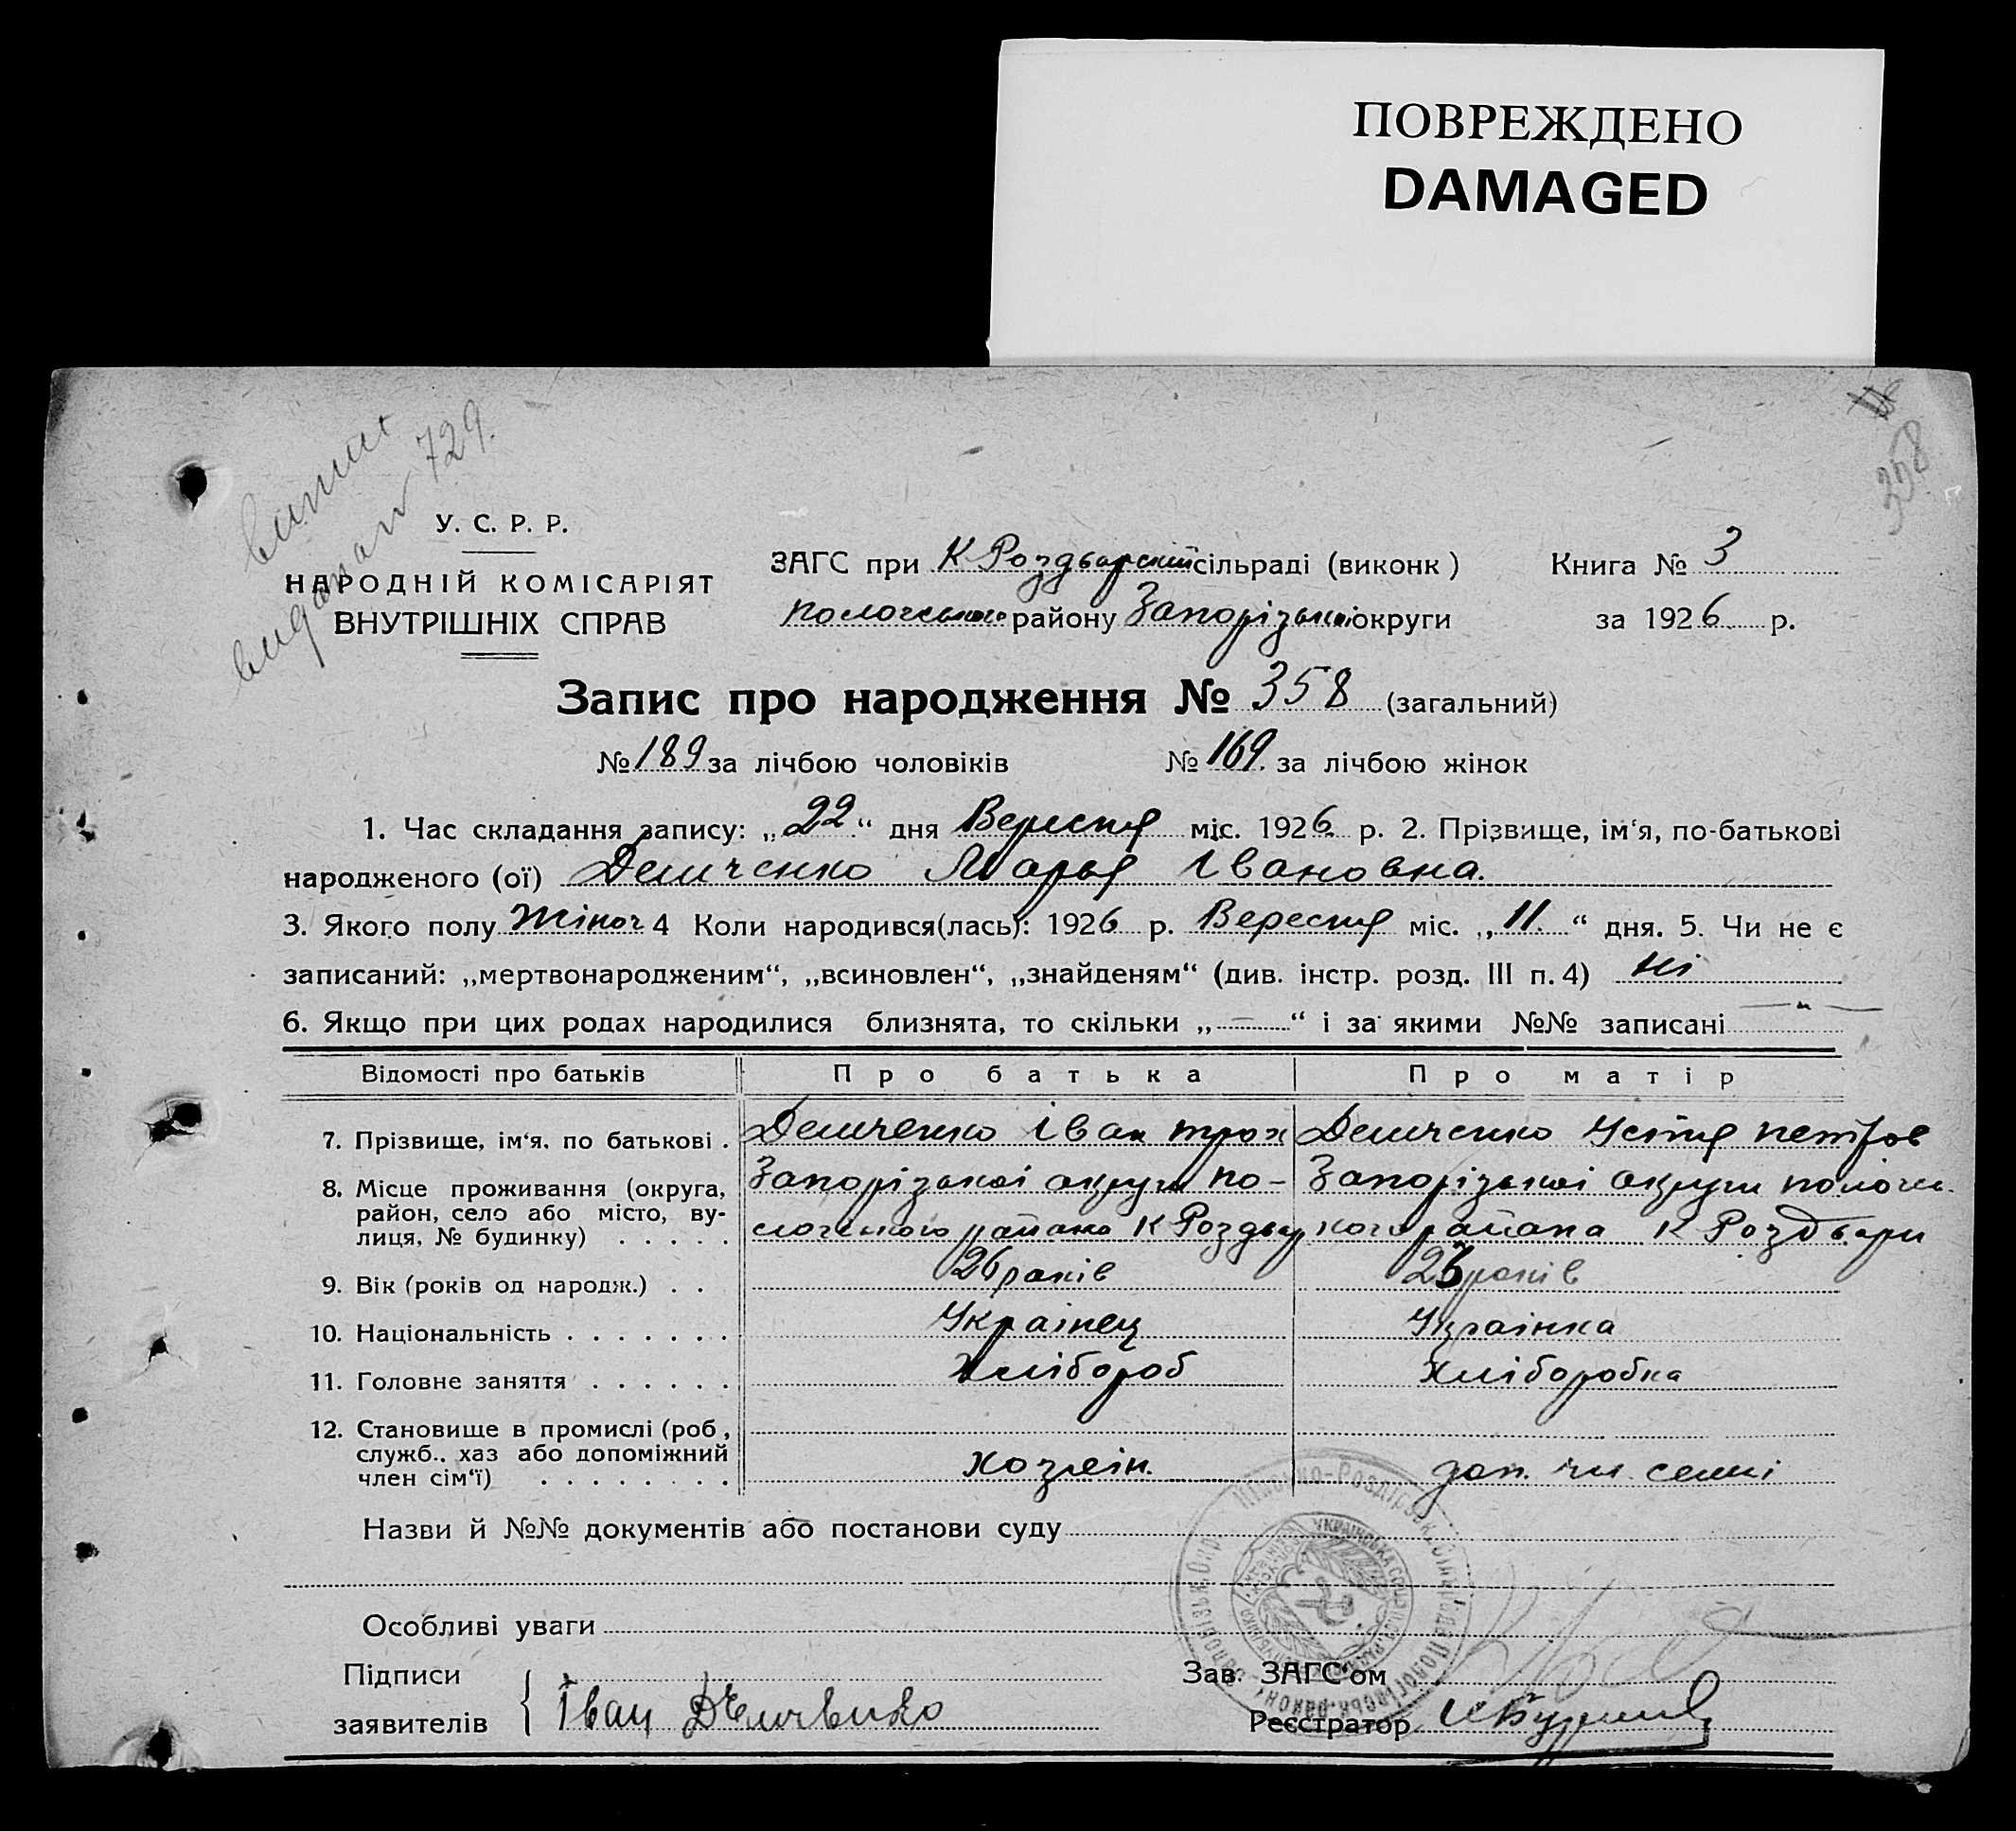 ПОВРЕЖДЕНО
DAMAGED
358
729.
У. С. Р. Р.
НАРОДНІЙ КОМІСАРІЯТ
ВНУТРІШНІХ СПРАВ
ЗАГС при К Роздварский сільраді (виконк)
Книга № 3
пологського району Запорізької округи
за 1926 р.
Запис про народження № 358 (загальний)
№ 189 за лічбою чоловіків № 169. за лічбою жінок
1. Час складання запису: „22“ дня Вересня міс. 1926 р. 2. Прізвище, ім‘я, по-батькові
народженого (ої) Демченко Марья Івановна.
3. Якого полу Жіноч 4 Коли народився(лась): 1926 р. Вересня міс. „11.“ дня. 5. Чи не є
записаний: „мертвонародженим“, „всиновлен“, „знайденям“ (див. інстр. розд. III п. 4) Ні
6. Якщо при цих родах народилися близнята, то скільки „ – “ і за якими №№ записані — " —
Відомості про батьків Про батька Про матір
7. Прізвище, ім‘я, по батькові . Демченко Іван трох Демченко Устия петров
8. Місце проживання (округа, Запорізької округи по- Запорізької округи пологс
район, село або місто, ву- логського района К Роздвар кого района К Роздвари
лиця, № будинку) . . . . .
9. Вік (років од народж.) . . 26 років 23 років
10. Національність . . . . . . . Українец Українка
11. Головне заняття . . . . . . Хлібороб Хліборобка
12. Становище в промислі (роб,
служб., хаз або допоміжний хозяін. доп. чл. семі
член сім‘ї) . . . . . . . .
Назви й №№ документів або постанови суду
Особливі уваги
Підписи Зав. ЗАГС‘ом
заявителів { Іван Демченко Реєстратор